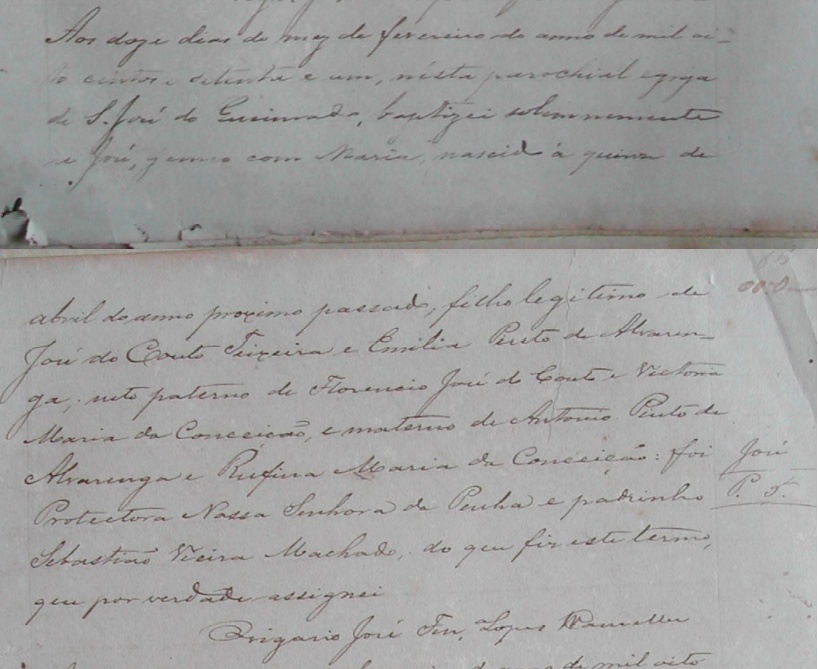 Aos doze dias do mez de fevereiro do anno de mil oi-
to centos e setenta e um, nésta parochial egreja
de S. José do Queimado, baptizei solemnemente
a José, gemeo com Maria, nascido á quinze de
abril do anno proximo passado, filho legitimo de
José do Couto Teixeira e Emilia Pinto de Alvaren-
ga; neto paterno de Florencio José do Couto e Victoria
Maria da Conceição, e materno de Antonio Pinto de
Alvarenga e Rufina Maria da Conceição: foi José
Protectora Nossa Senhora da Penha e padrinho P.
Sebastião Vieira Machado, do que fiz este termo,
que por verdade assignei
José Lopes
anno de mil oito